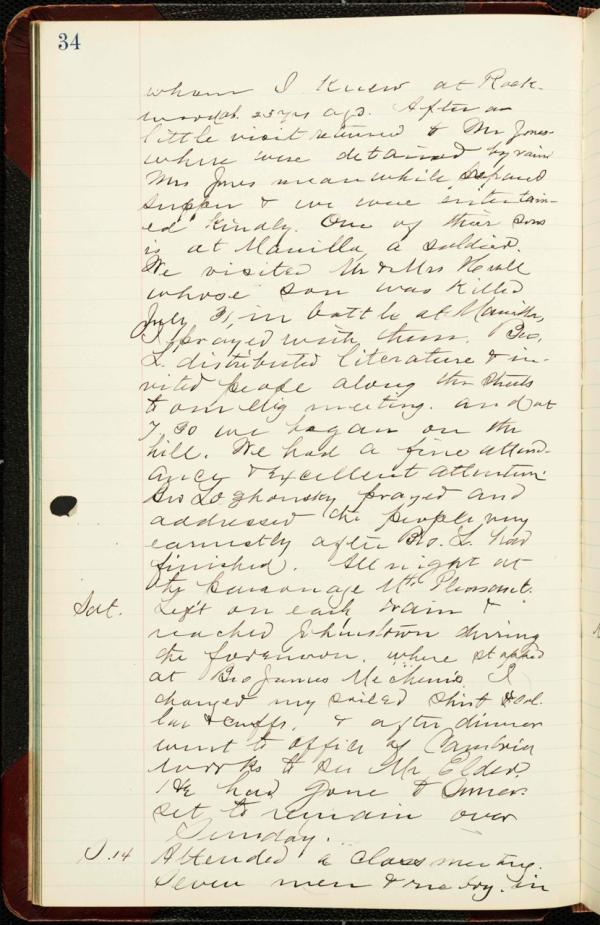 34
whom I knew at Rock-
wood ab. 25 yrs ago. After a
little visit returned to Mr Jones
where were detained by rain
Mrs Jones meanwhile prepared
supper & we were entertain-
ed kindly. One of their sons
is at Manilla, a soldier.
We visited Mr & Mrs
whose son was killed
July 31, in battle at Manilla,
I prayed with them. Bro.
L. distributed literature & in-
vited people along the streets
to our meeting. and at
7 30 we began on the
hill. We had a fine attend-
ance & excellent attention.
prayed and
addressed the people very
earnestly after Bro. L. had
finished. All night at
the parsonage Mt. Pleasant.
Sat. Left on early train &
reached Johnstown during
the forenoon. where stopped
at Bro James Mechems. I
changed my soiled shirt & col-
lar & cuffs, & after dinner
went to office of Cambria
works to see Mr Elder.
He had gone to Somer-
set to remain over
Sunday.
S. 14 Attended a class meeting.
Seven men & one boy. in